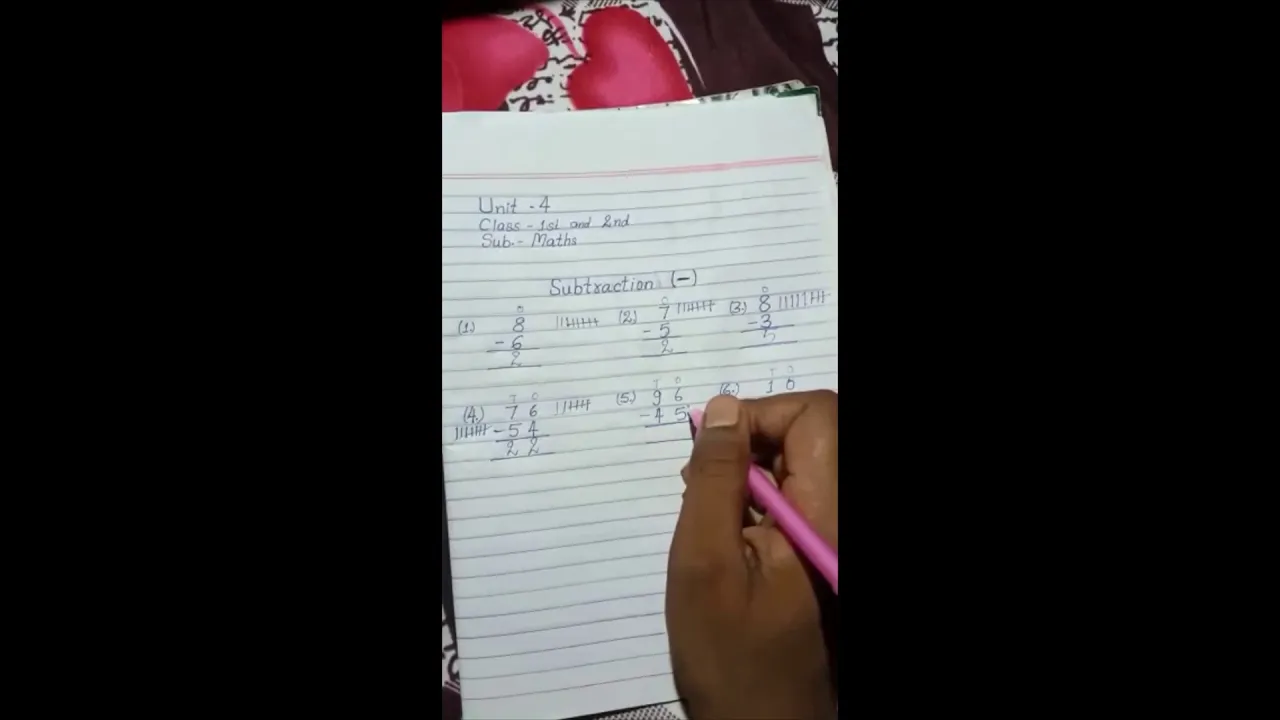 Unit - 4
Class - 1st and 2nd
Sub.- Maths
Subtraction (-)
(1.) O 8 - 6 2
(2.) O 7 - 5 2
(3.) O 8 - 3 5
(4.) T O 7 6 - 5 4 2 2
(5.) T O 9 6 - 4 5
(6.) T O 1 0